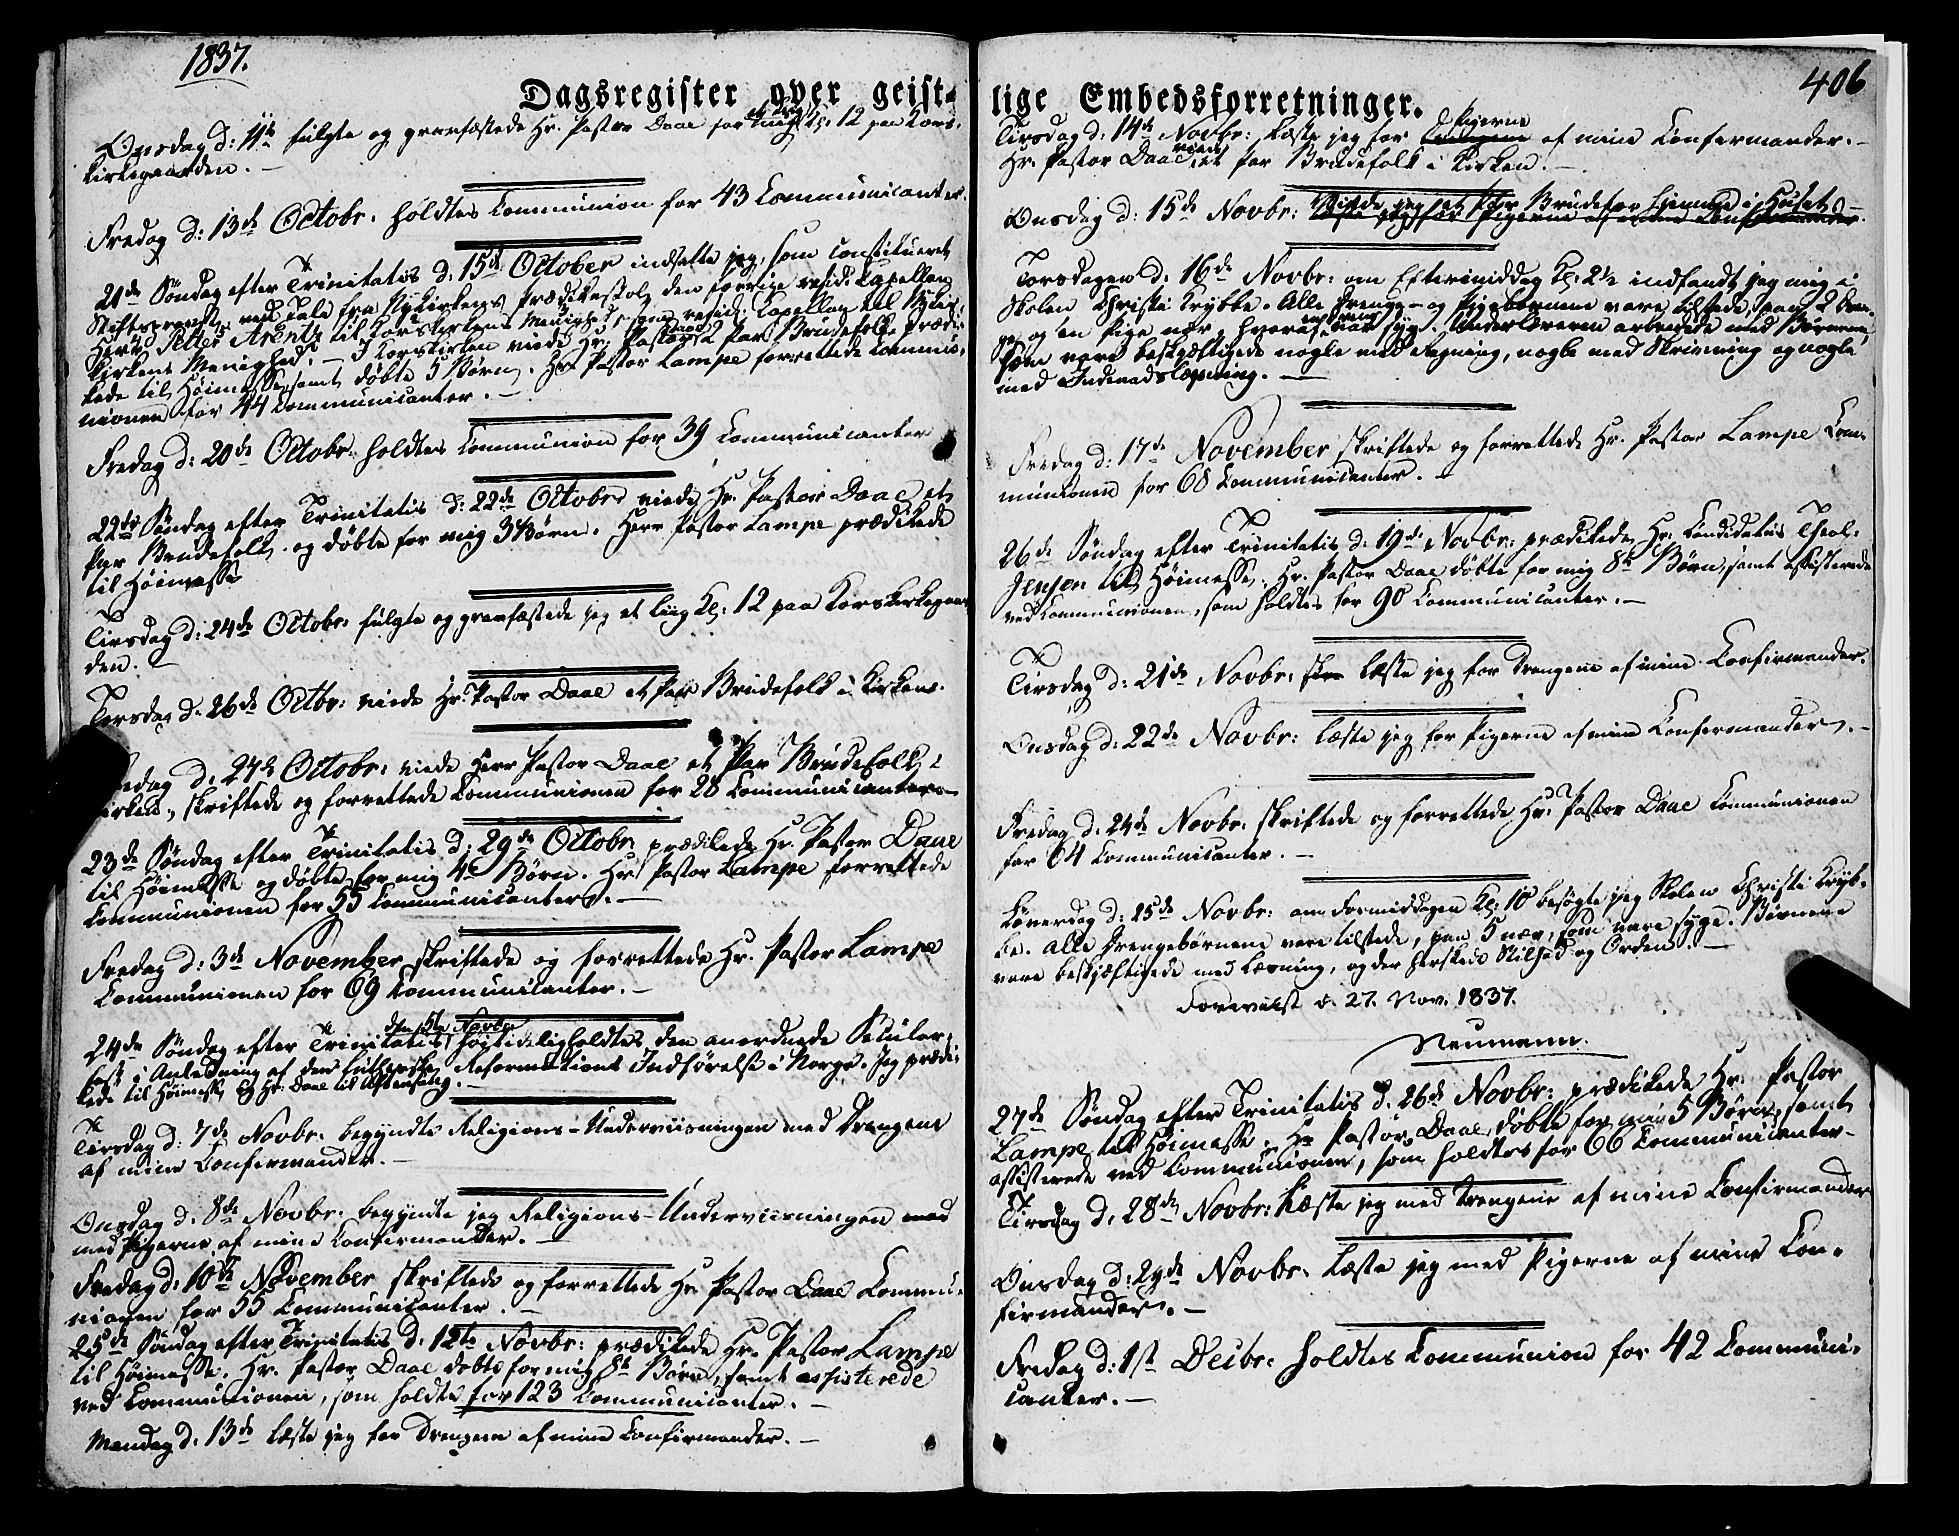 1837.
Dagsregister over geist-
Onsdag d: 11te fulgte og gravfæstede Hr. Pastor Daae for mig Kl: 12 paa Kors-
kirkegaarden. —
Fredag d: 13de Octobr. holdtes Communion for 43 Communicanter.
21de Søndag efter Trinitatis d: 15de October indsatte jeg, som constitueret
Stiftsprovst, ved Tale fra Nykirkens Prædikestol, den forrige resid: Capellan
Herr Petter Arentz til Korskirkens Menighed, som resid: Capellan til Nykir-
kens Menighed. — I Korskirken viede Hr. Pastor Daae 2 Par Brudefolk, prædi-
kede til Høimesse, samt døbte 5 Børn. Hr. Pastor Lampe forrettede Commu-
nionen for 44 Communicanter. —
Fredag d: 20de Octobr. holdtes Communion for 39 Communicanter
22de Søndag efter Trinitatis d: 22de Octobr. viede Hr. Pastor Daae et
Par Brudefolk og døbte for mig 3 Børn. Herr Pastor Lampe prædikede
til Høimesse
Tirsdag d: 24de Octobr: fulgte og gravfæstede jeg et Liig Kl: 12 paa Korskirkegaar-
den. —
Torsdag d. 26de Octbr: viede Hr. Pastor Daae et Par Brudefolk i Kirken.
Fredag d. 27de Octobr: viede Herr Pastor Daae et Par Brudefolk i
Kirken, skriftede og forrettede Communionen for 28 Communicanter. —
23de Søndag efter Trinitatis d: 29de Octobr. prædikede Hr. Pastor Daae
til Høimesse og døbte for mig 4 Børn. Hr. Pastor Lampe forrettede
Communionen for 55 Communicanter. —
Fredag d: 3de November skriftede og forrettede Hr. Pastor Lampe
Communionen for 69 Communicanter. —
24de Søndag efter Trinitatis den 5te Novbr. høitideligholdtes den anordnede Secular-
fest i Anledning af den lutherske Reformations Indførelse i Norge. Jeg prædi-
kede til Høimesse og Hr. Daae til Aftensang. —
Tirsdag d: 7de Novbr. begyndte Religions-Underviisningen med Drengene
af mine Confirmander. —
Onsdag d. 8de Novbr. begyndte jeg Religions-Underviisningen med
med Pigerne af mine Confirmander. —
Fredag d: 10de November skriftede og forrettede Hr. Pastor Daae Commu-
nionen for 55 Communicanter. —
25de Søndag efter Trinitatis d: 12te Novbr: prædikede Hr. Pastor Lampe
til Høimesse. Hr. Pastor Daae døbte for mig 8 Børn, samt assisterede
ved Communionen, som holdtes for 123 Communicanter. —
Mandag d. 13de læste jeg for Drengene af mine Confirmander. —
406
lige Embedsforretninger.
Tirsdag d: 14de Novbr: læste jeg for Pigerne af mine Confirmander. —
Hr. Pastor Daae viede et Par Brudefolk i Kirken. —
Onsdag d: 15de Novbr: viede jeg et Par Brudefolk hjemme i Huset. —
læste jeg for Pigerne af mine Confirmander.
Torsdagen d. 16de Novbr: om Eftermiddag Kl: 2½ indfandt jeg mig i
Skolen Christi Krybbe. Alle Drenge- og Pigebørnene vare tilstede, paa 2 Dren-
ge og en Pige nær, hvoraf var syg. Underlæreren arbeidede med Børnene,
som vare beskjæftigede nogle med Regning, nogle med Skrivning og nogle
med Indenadslæsning. —
Fredag d: 17de November skriftede og forrettede Hr. Pastor Lampe Com-
munionen for 68 Communicanter. —
26de Søndag efter Trinitatis d: 19de Novbr: prædikede Hr. Candidatus Theol.
Jensen til Høimesse. Hr. Pastor Daae døbte for mig 8 Børn, samt assisterede
ved Communionen, som holdtes for 90 Communicanter. —
Tirsdag d: 21de Novbr: læste jeg for Drengene af mine Confirmander.
Onsdag d: 22de Novbr: læste jeg for Pigerne af mine Confirmander. —
Fredag d. 24de Novbr: skriftede og forrettede Hr. Pastor Daae Communionen
for 64 Communicanter. —
Løverdag d: 25de Novbr: om Formiddagen Kl: 10 besøgte jeg Skolen Christi Kryb-
be. Alle Drengebørnene vare tilstede, paa 5 nær, som vare syge. Børnene
vare beskjæftigede med Læsning, og der herskede Stilhed og Orden. —
Foreviist d. 27. Nov. 1837.
Neumann.
27de Søndag efter Trinitatis d. 26de Novbr: prædikede Hr. Pastor
Lampe til Høimesse. Hr. Pastor Daae døbte for mig 5 Børn, samt
assisterede ved Communionen, som holdtes for 66 Communicanter —
Tirsdag d: 28de Novbr: læste jeg med Drengene af mine Confirmander
Onsdag d: 29de Novbr. læste jeg med Pigerne af mine Con-
firmander. —
Fredag d: 1ste Decbr: holdtes Communion for 42 Communi-
canter. —